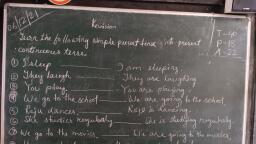 06/12/21
Revision
T - 40
P - 18
A - 22
Turn the following simple present tense into present
continuous tense.
① I sleep ______ I am sleeping.
② They laugh ______ They are laughing
③ You play ______ You are playing.
④ We go to the school ______ We are going to the school.
⑤ Raju dances ______ Raju is dancing.
⑥ She studies regularly ______ She is studying regularly.
⑦ We go to the movies. ______ We are going to the movies.